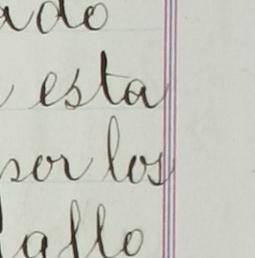 ado
esta
por los
allo